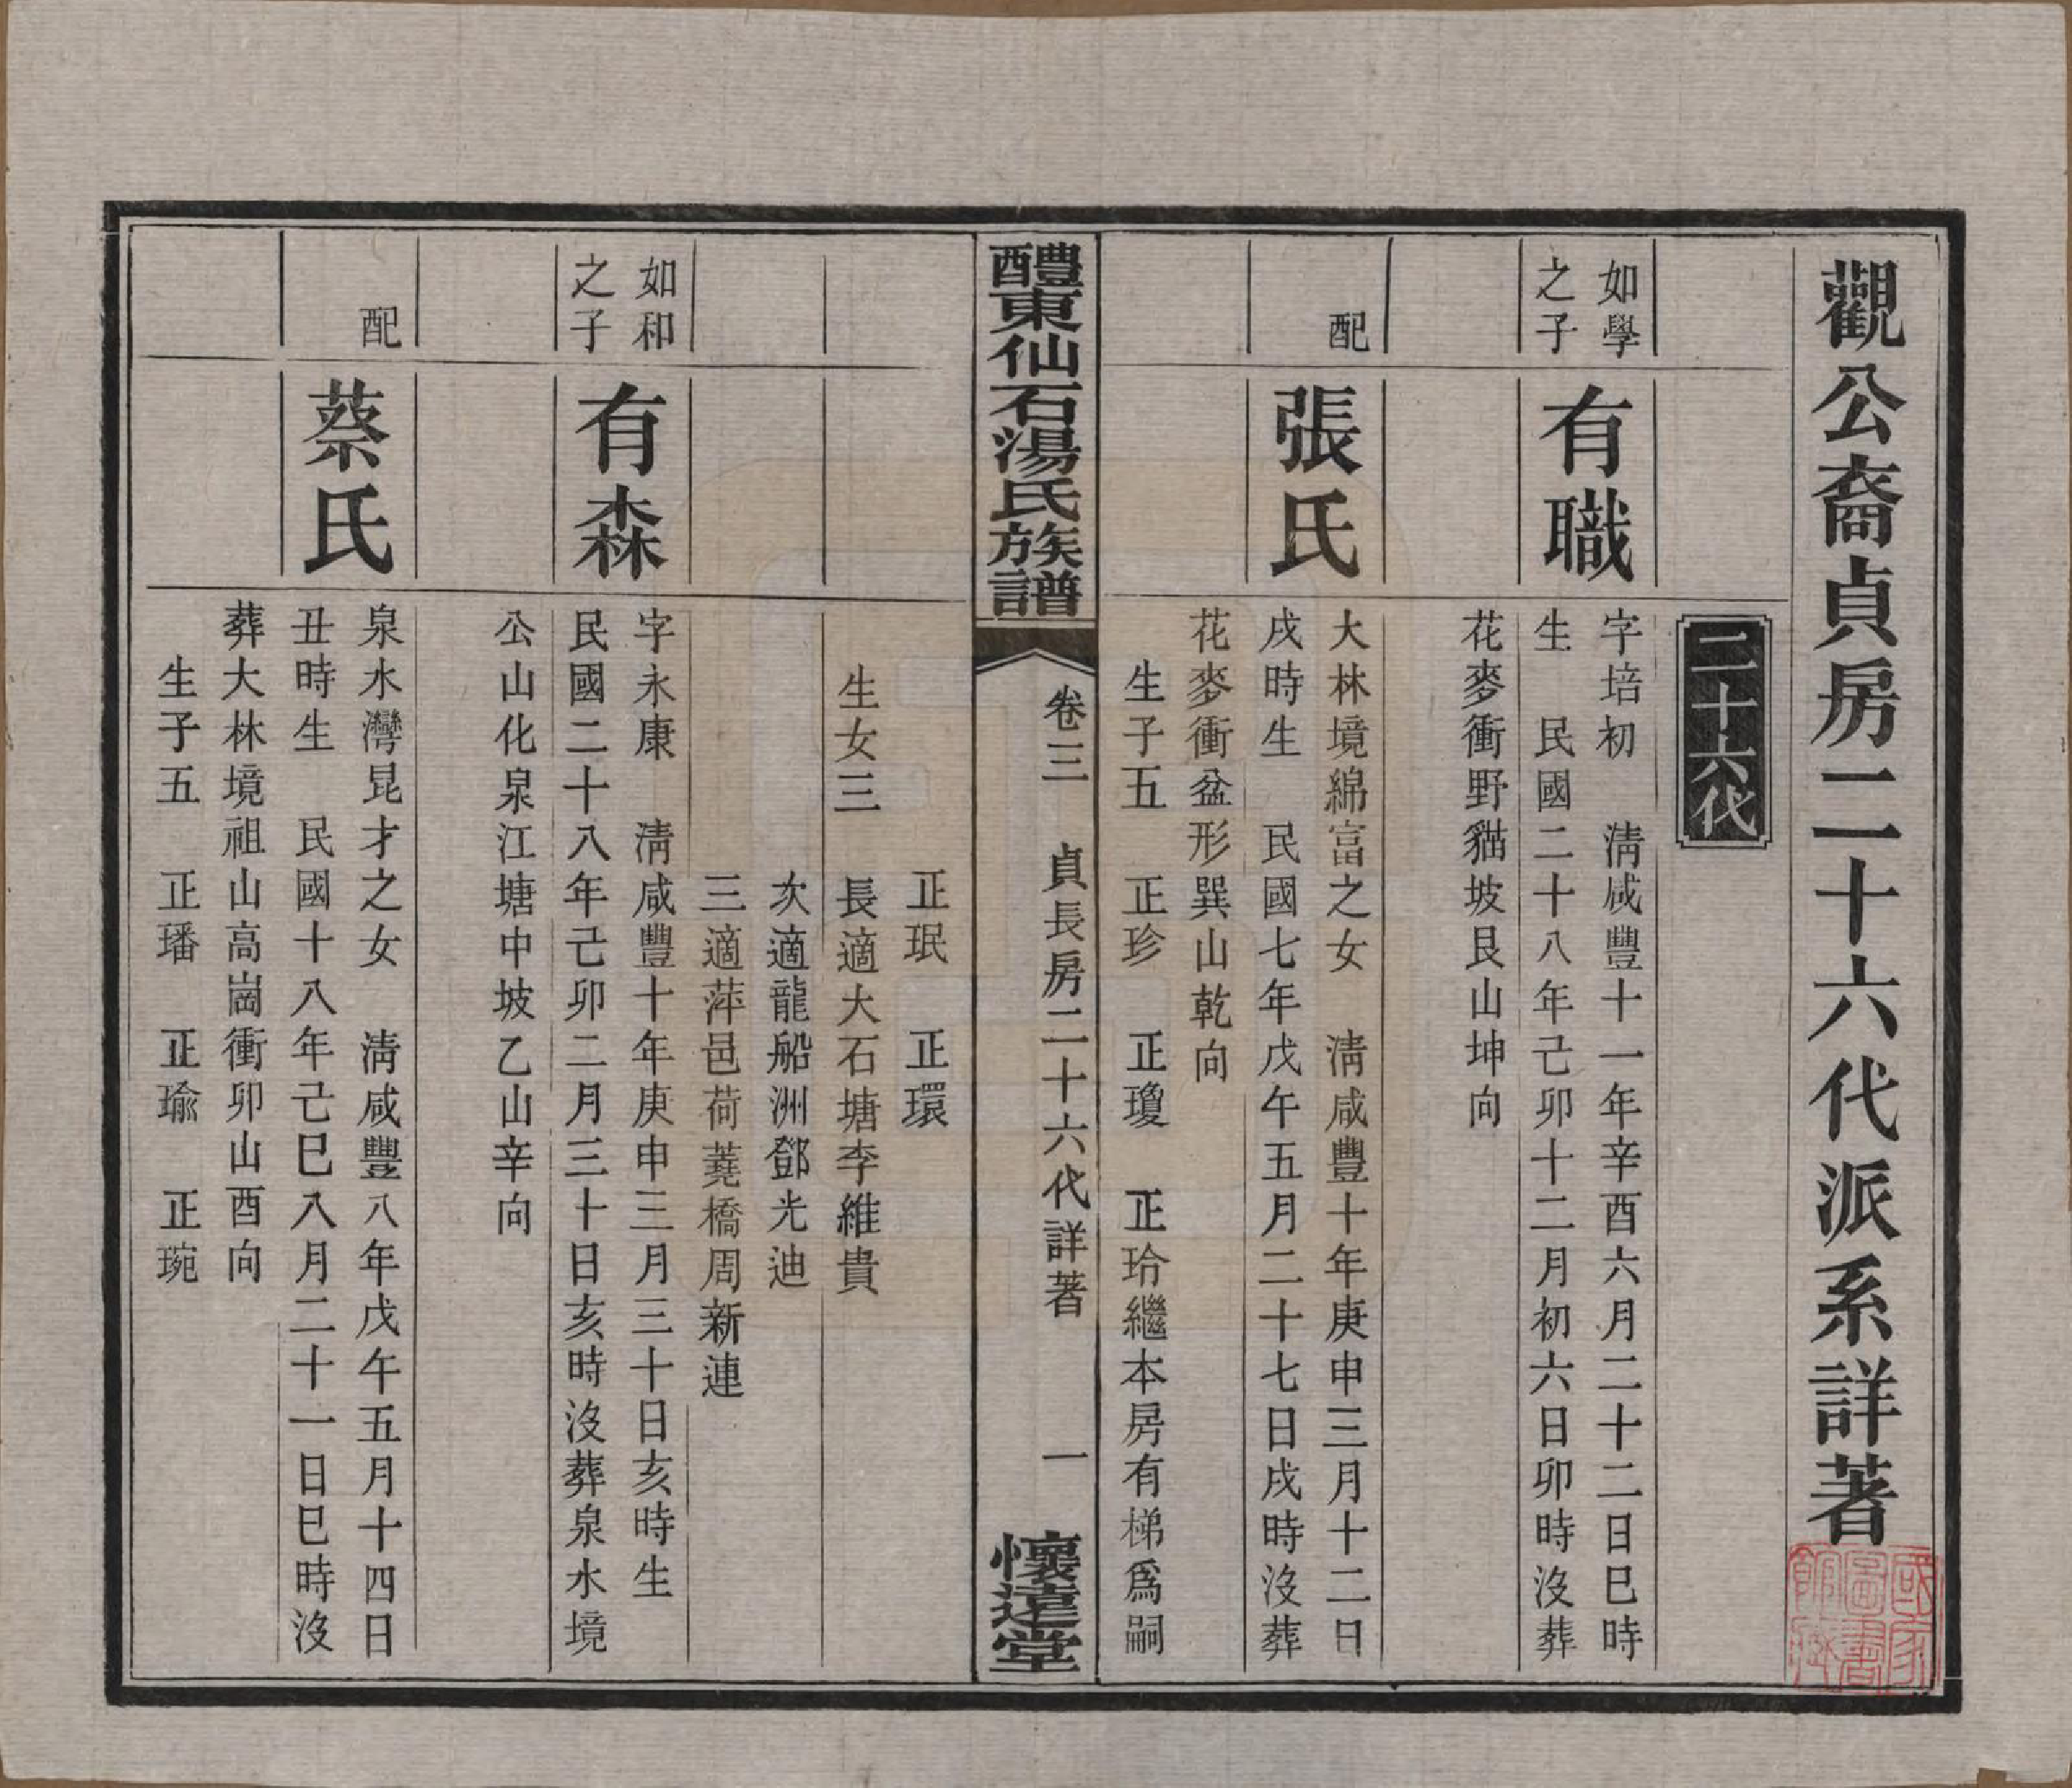 觀公裔貞房二十六代派系詳著
二十六代
如學
之子
有職
字培初　清咸豐十一年辛酉六月二十二日巳時
生　民國二十八年己卯十二月初六日卯時沒葬
花麥衝野貓坡艮山坤向
配
張氏
大林境綿富之女　清咸豐十年庚申三月十二日
戌時生　民國七年戊午五月二十七日戌時沒葬
花麥衝盆形巽山乾向
生子五　正珍　正瓊　正玲繼本房有梯爲嗣
醴東仙石湯氏族譜
卷三　貞長房二十六代詳著　一
懷遠堂
正珉　正環
生女三　長適大石塘李維貴
次適龍船洲鄧光迪
三適萍邑荷蕘橋周新連
如和
之子
有森
字永康　清咸豐十年庚申三月三十日亥時生
民國二十八年己卯二月三十日亥時沒葬泉水境
公山化泉江塘中坡乙山辛向
配
蔡氏
泉水灣昆才之女　清咸豐八年戊午五月十四日
丑時生　民國十八年己巳八月二十一日巳時沒
葬大林境祖山高崗衝卯山酉向
生子五　正璠　正瑜　正琬
國家
圖書
館藏